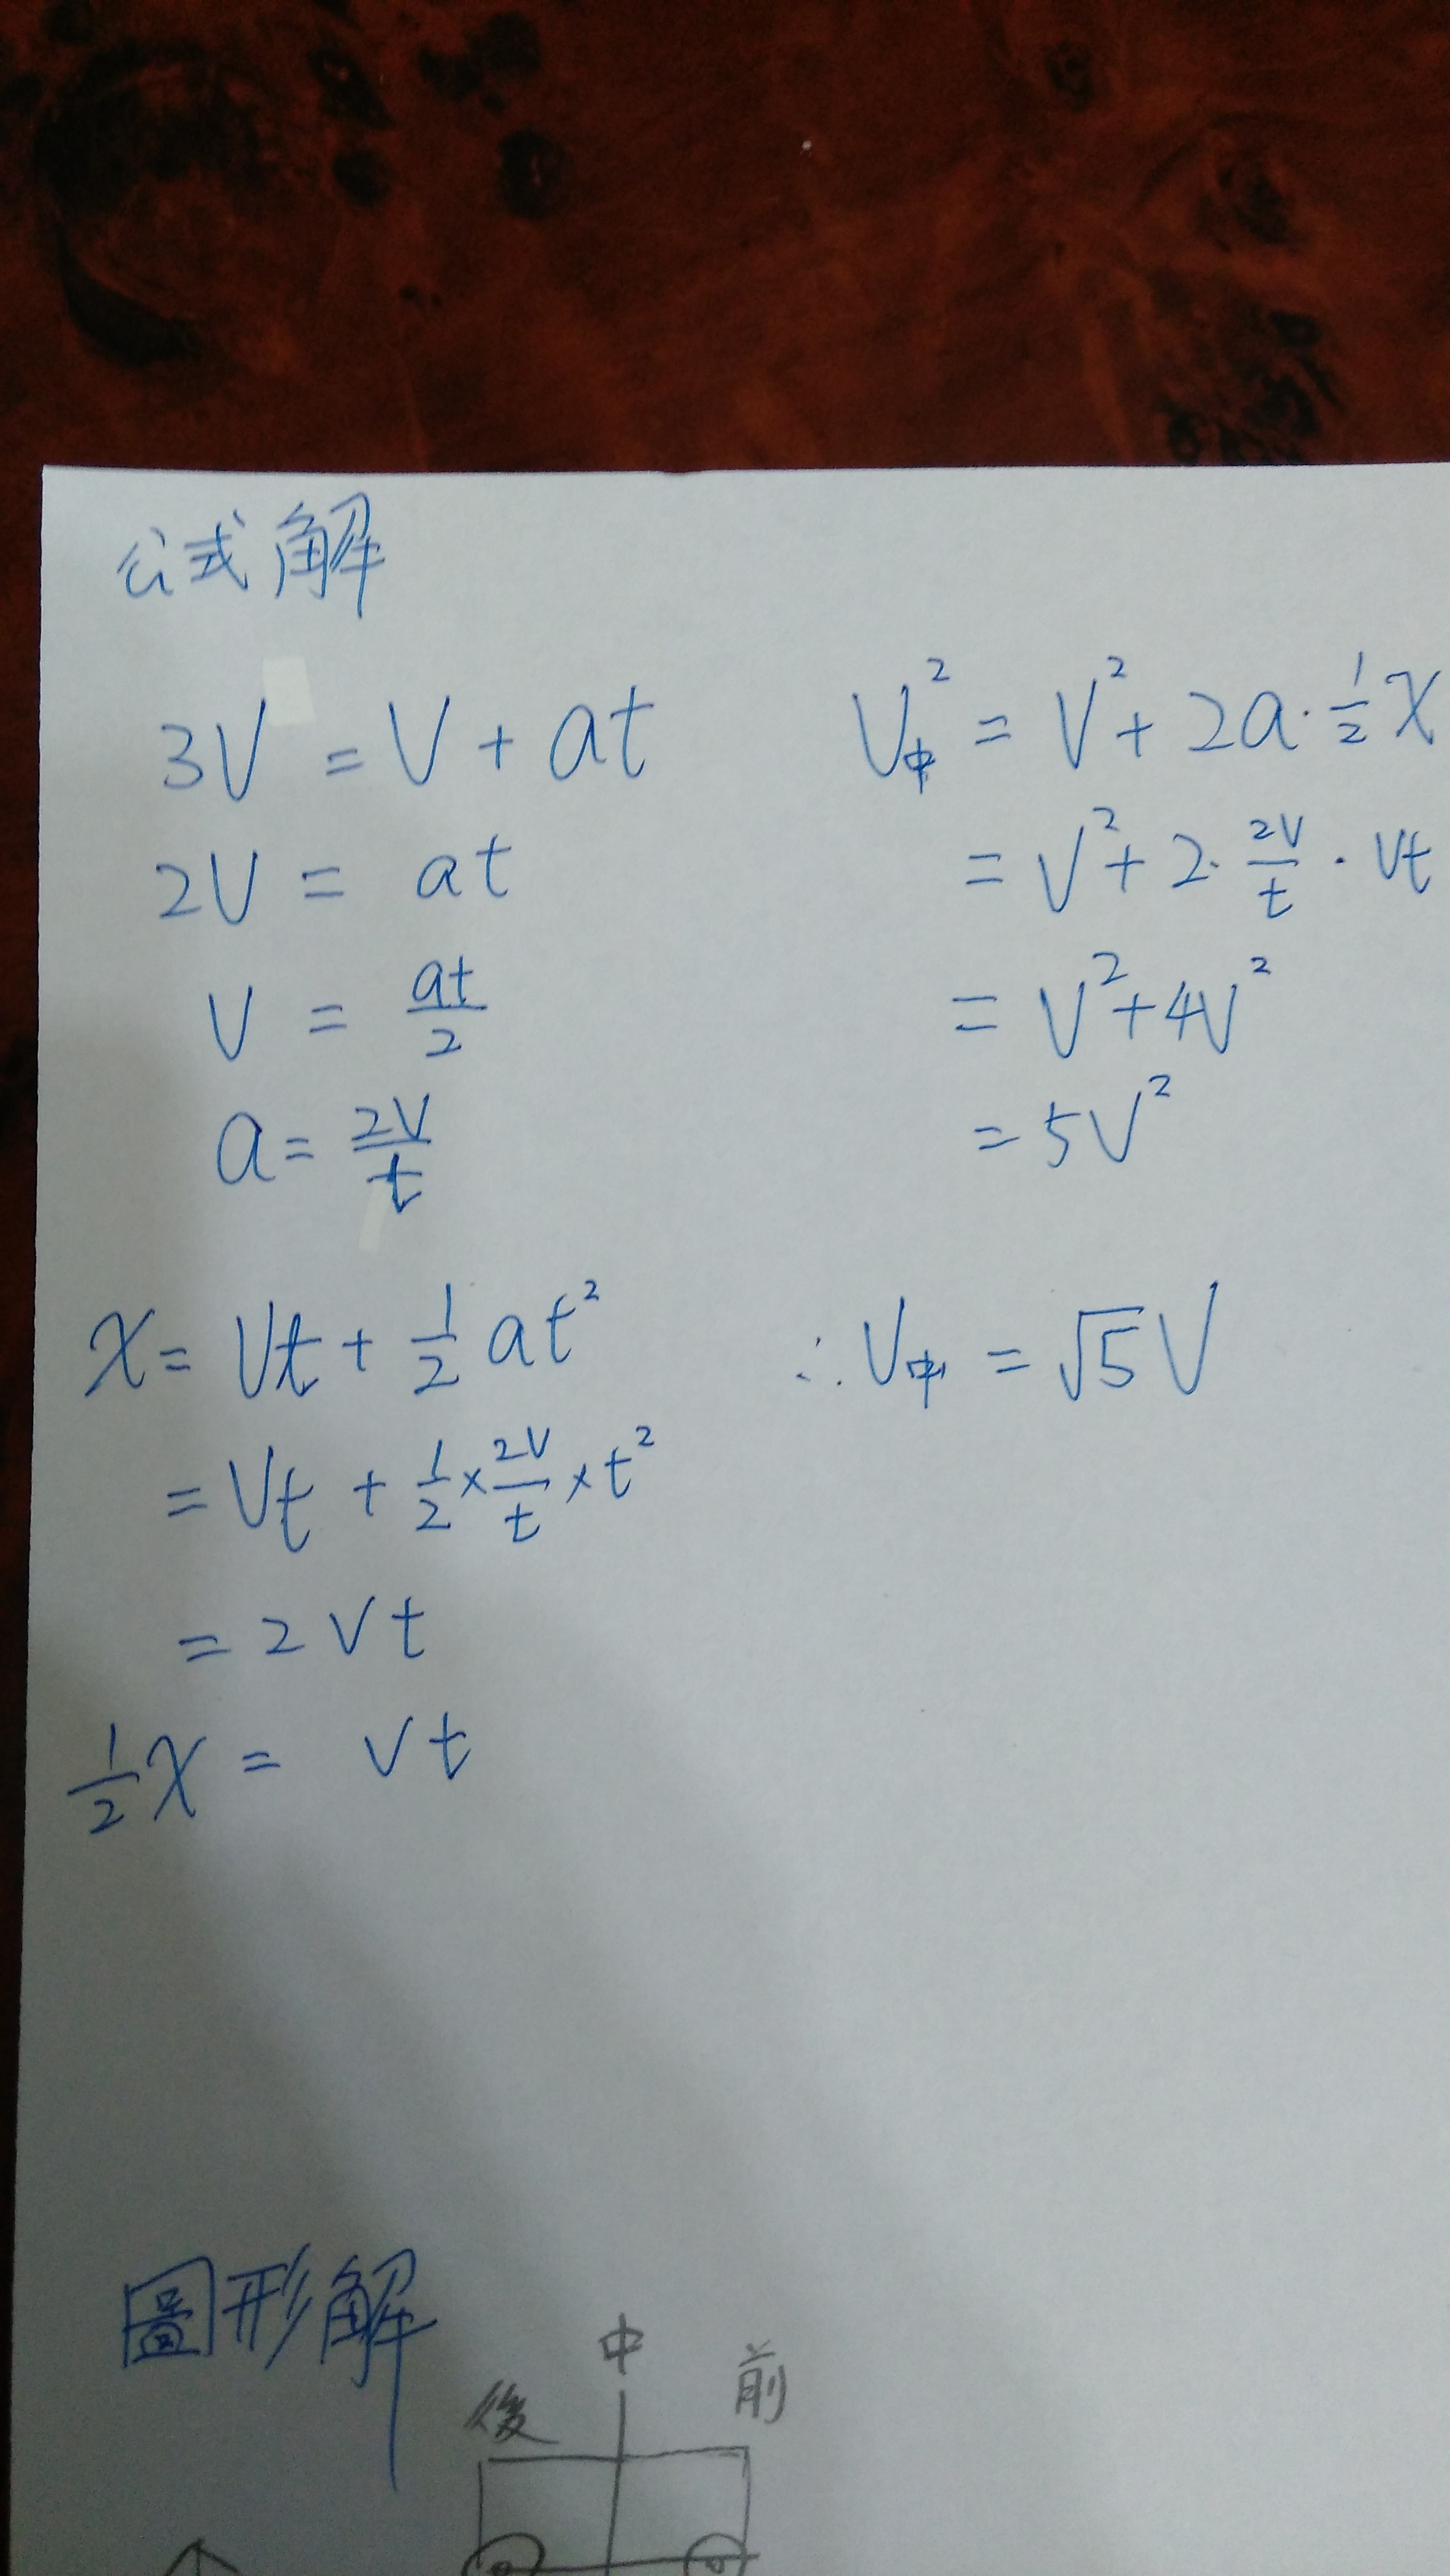 公式解
3V = V + at
2V = at
V = at/2
a = 2V/t
x = Vt + 1/2 at²
= Vt + 1/2 × 2V/t × t²
= 2Vt
1/2 x = Vt
V中² = V² + 2a · 1/2 x
= V² + 2 · 2V/t · Vt
= V² + 4V²
= 5V²
∴ V中 = √5 V
圖形解
中
後 前